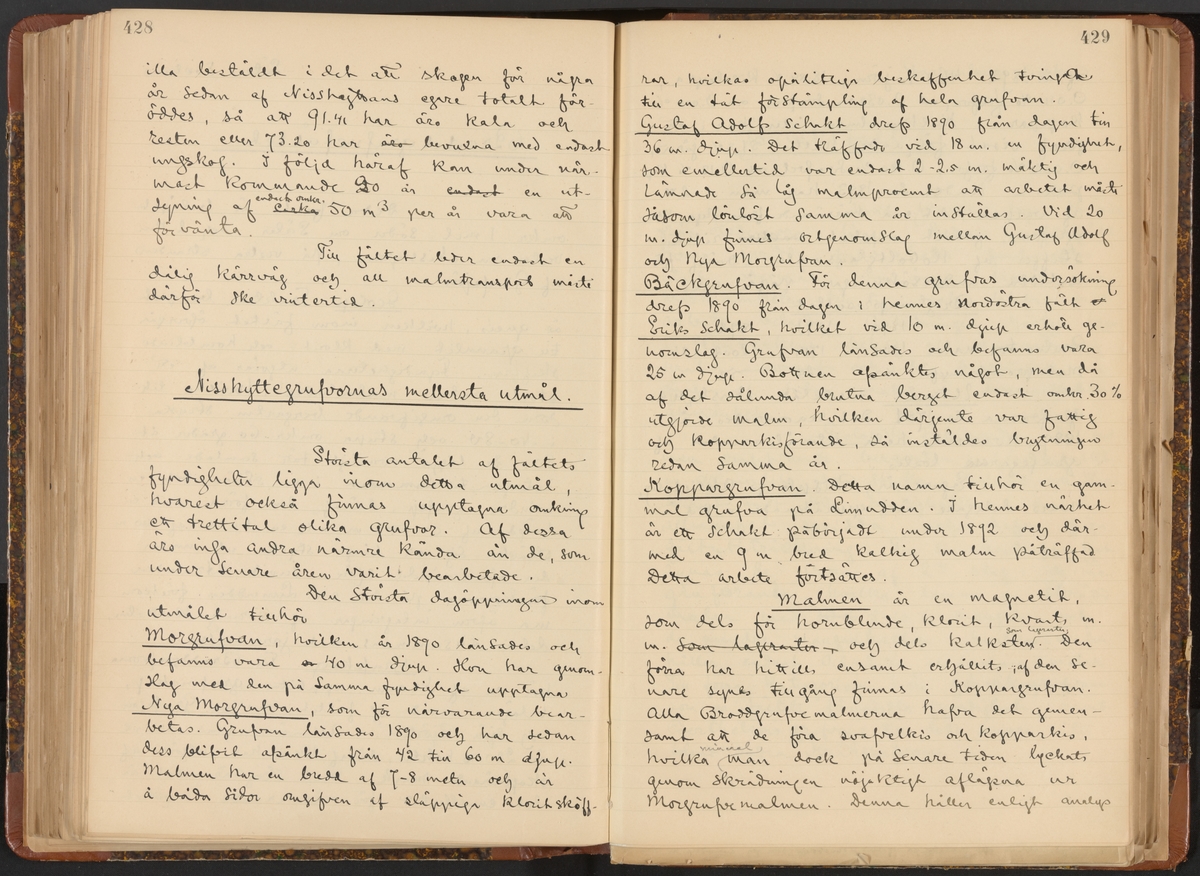 428
illa bestäldt i det att skogen för några
år sedan af Nisshyttans egare totalt för-
öddes, så att 91.41 har äro kala och
resten eller 73.20 har äro bevuxna med endast
ungskog. I följd häraf kan under när-
mast kommande 20 år endast en ut-
endast omkr.
syning af cirka 50 m³ per år vara att
förvänta.
Till fältet leder endast en
dålig kärrväg och all malmtransport måste
därför ske vintertid.
Nisshyttegrufvornas mellersta utmål.
Största antalet af fältets
fyndigheter ligga inom detta utmål,
hvarest också finnas upptagna omkring
ett trettital olika grufvor. Af dessa
äro inga andra närmre kända än de, som
under senare åren varit bearbetade.
Den största dagöppningen inom
utmålet tillhör
Morgrufvan, hvilken år 1890 länsades och
befanns vara 40 m djup. Hon har genom-
slag med den på samma fyndighet upptagna
Nya Morgrufvan, som för närvarande bear-
betas. Grufvan länsades 1890 och har sedan
dess blifvit afsänkt från 42 till 60 m djup.
Malmen har en bredd af 7-8 meter och är
å båda sidor omgifven af släppiga kloritsköl-
429
rar, hvilkas opålitliga beskaffenhet tvingat
till en tät förstämpling af hela grufvan.
Gustaf Adolfs Schakt drefs 1890 från dagen till
36 m. djup. Det träffade vid 18 m. en fyndighet,
som emellertid var endast 2-2.5 m. mäktig och
lämnade så låg malmprocent att arbetet måste
såsom lönlöst samma år inställas. Vid 20
m. djup finnes ortgenomslag mellan Gustaf Adolf
och Nya Morgrufvan.
Bäckgrufvan. För denna grufvas undersökning
drefs 1890 från dagen i hennes nordöstra fält
Eriks Schakt, hvilket vid 10 m. djup erhöll ge-
nomslag. Grufvan länsades och befanns vara
25 m djup. Bottnen afsänktes något, men då
af det sålunda brutna berget endast omkr. 30%
utgjorde malm, hvilken därjemte var fattig
och kopparkisförande, så inställdes brytningen
redan samma år.
Koppargrufvan. Detta namn tillhör en gam-
mal grufva på Limudden. I hennes närhet
är ett schakt påbörjadt under 1892 och där-
med en 9 m bred kalkig malm påträffad
Detta arbete fortsättes.
Malmen är en magnetit,
som dels för hornblende, klorit, kvarts m.
som lagerarter
m. som lagerarter, och dels kalksten. Den
förra har hittills ensamt erhållits, af den se-
nare synes tillgång finnas i Koppargrufvan.
Alla Broddgrufvemalmerna hafva det gemen-
samt att de föra svafvelkis och kopparkis,
mineral
hvilka man dock på senare tiden lyckats
genom skrädningen nöjaktigt aflägsna ur
Morgrufvemalmen. Denna håller enligt analys